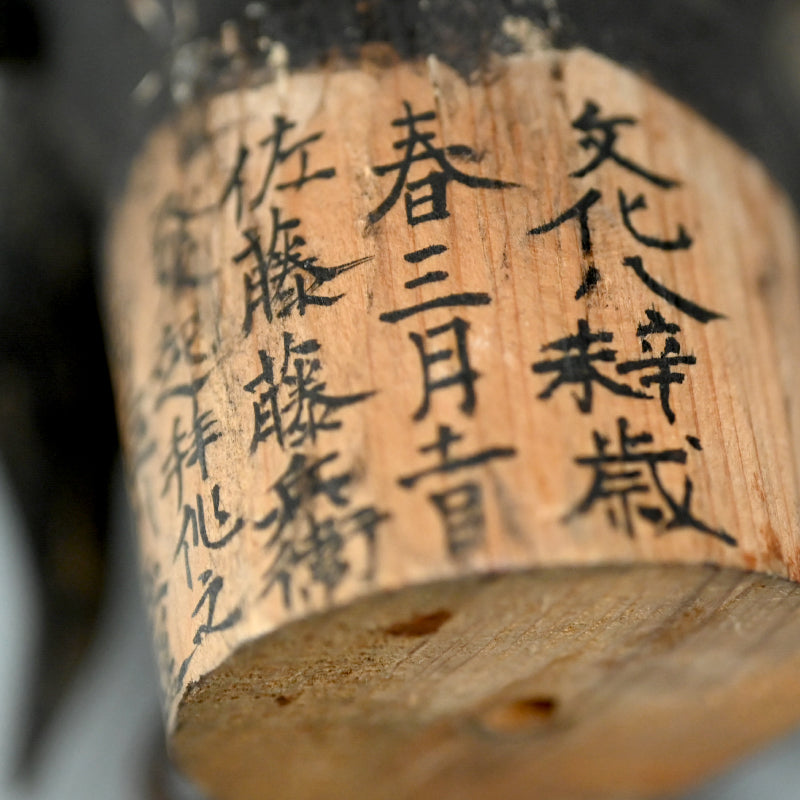 文化八辛未歳
春三月吉日
佐藤藤兵衛
拝作之